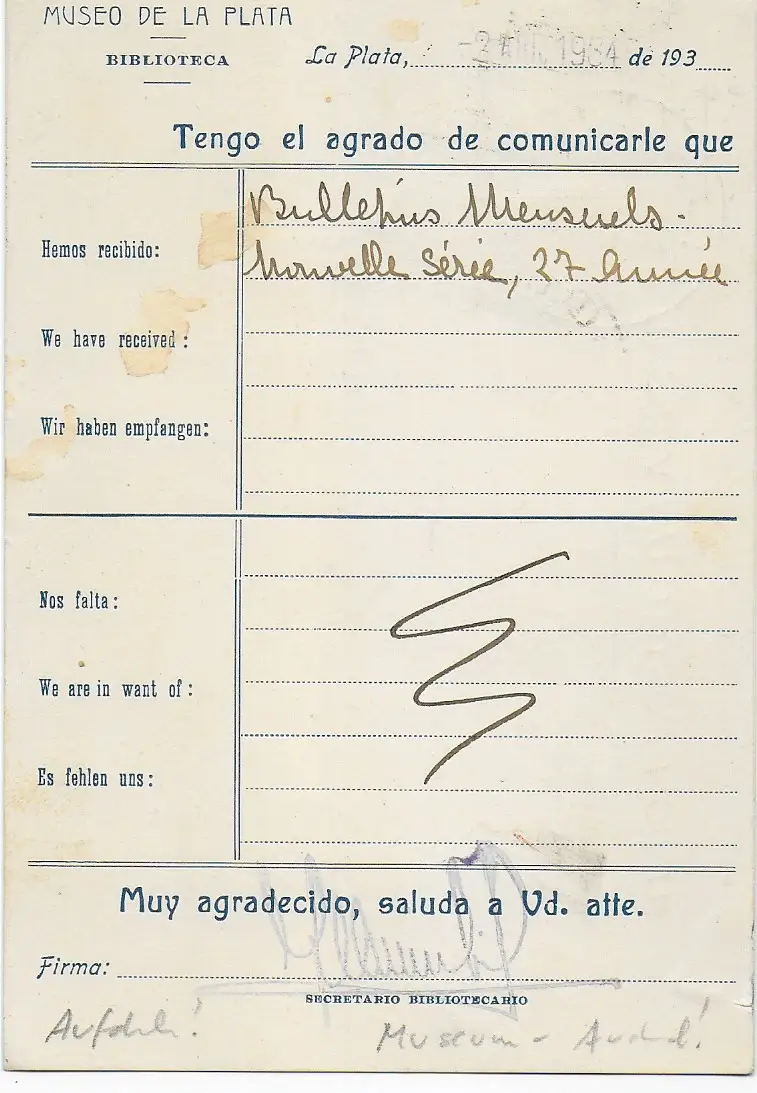 MUSEO DE LA PLATA
BIBLIOTECA
La Plata, -2 1934 de 193
Tengo el agrado de comunicarle que
Bulletins Mensuels -
Hemos recibido: Nouvelle Série, 27 Année
We have received :
Wir haben empfangen:
Nos falta :
We are in want of :
Es fehlen uns :
Muy agradecido, saluda a Vd. atte.
Firma:
SECRETARIO BIBLIOTECARIO
Museum -